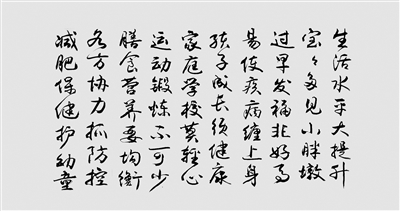 生活水平大提升
宝々多见小胖墩
过早发福非好事
易使疾病缠上身
孩子成长须健康
家庭学校莫轻心
运动锻炼不可少
膳食营养要均衡
各方协力抓防控
减肥保健护幼童